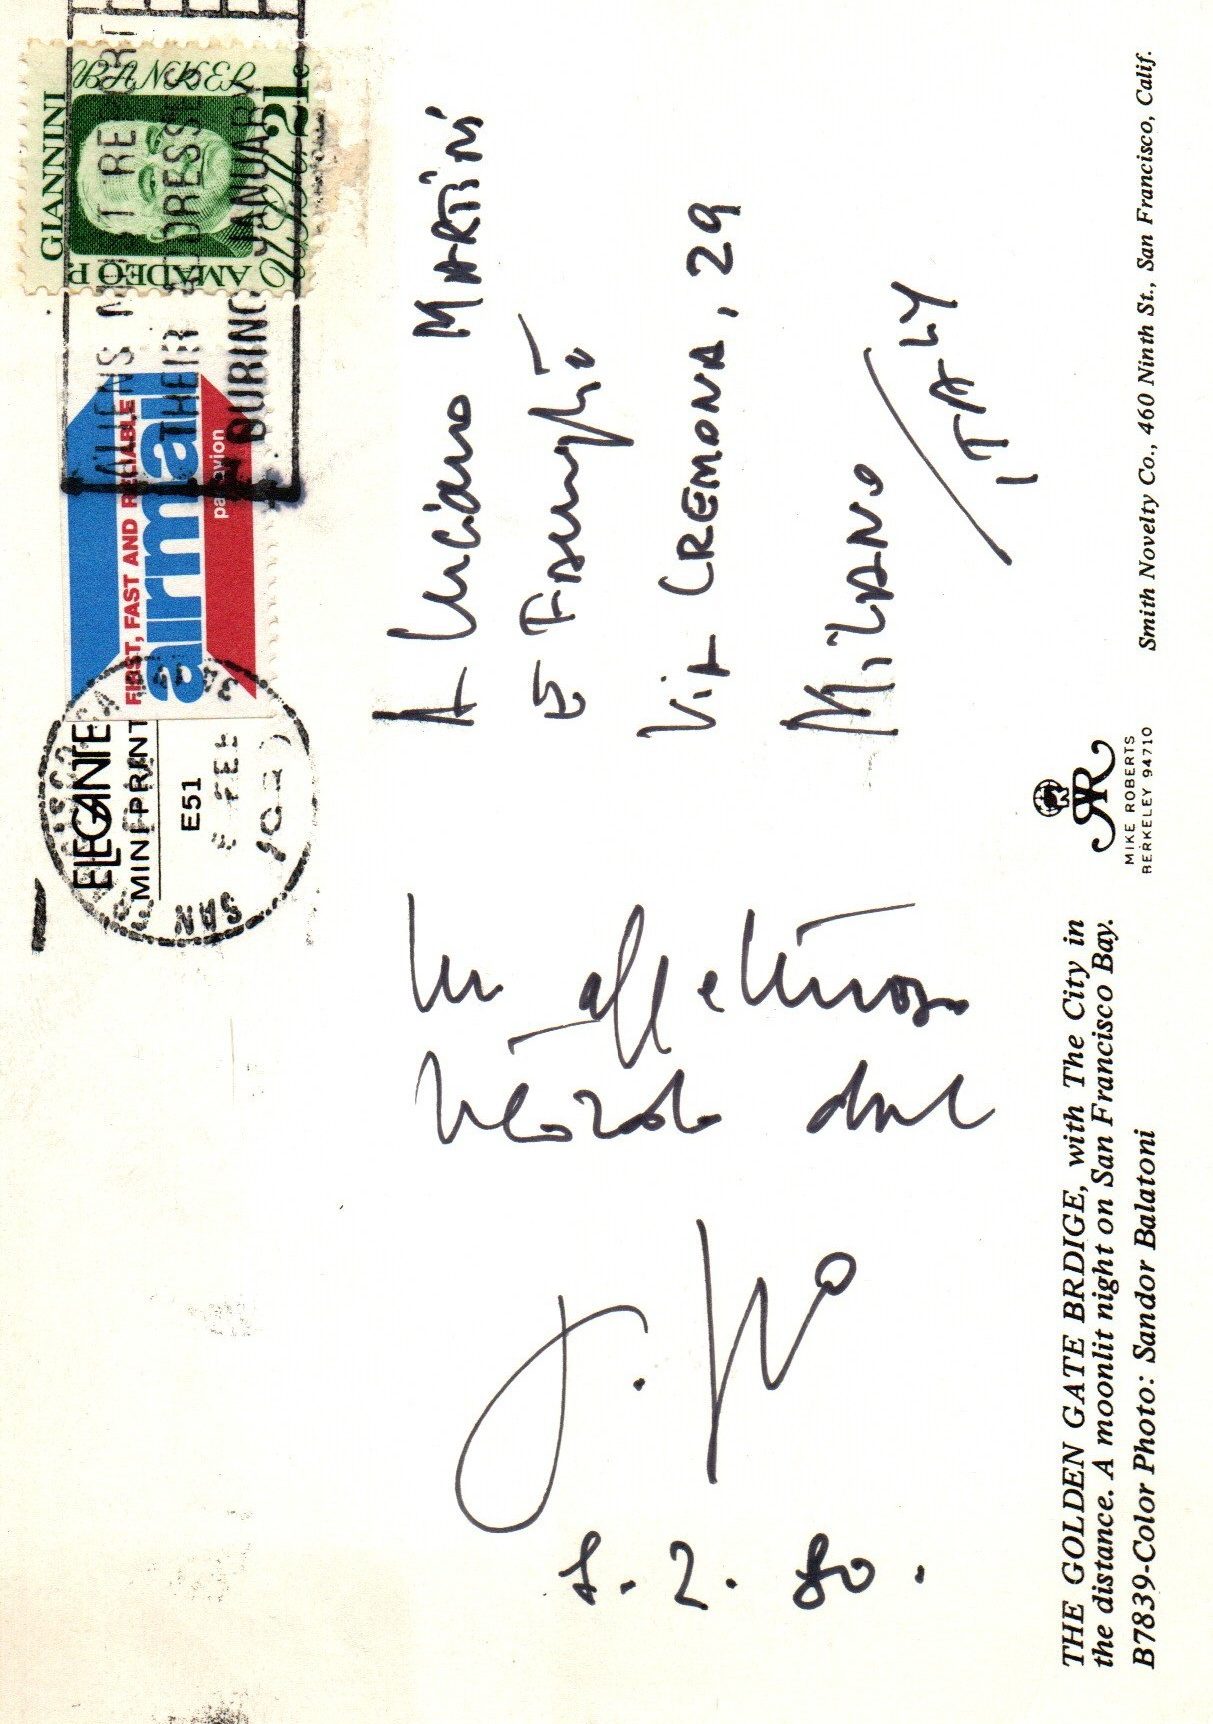 AMADEO P. GIANNINI
USA 21c
ALIENS MUST REPORT
THEIR ADDRESSES
DURING JANUARY
FIRST, FAST AND RELIABLE
airmail
par avion
ELEGANTE
MINI-PRINT
E51
SAN
FEB
A Luciano MARTINI
E Famiglia
VIA CREMONA, 29
MILANO
ITALY
Un affettuoso
ricordo dal
8.2.80.
MIKE ROBERTS
BERKELEY 94710
THE GOLDEN GATE BRDIGE, with The City in
the distance. A moonlit night on San Francisco Bay.
B7839-Color Photo: Sandor Balatoni
Smith Novelty Co., 460 Ninth St., San Francisco, Calif.